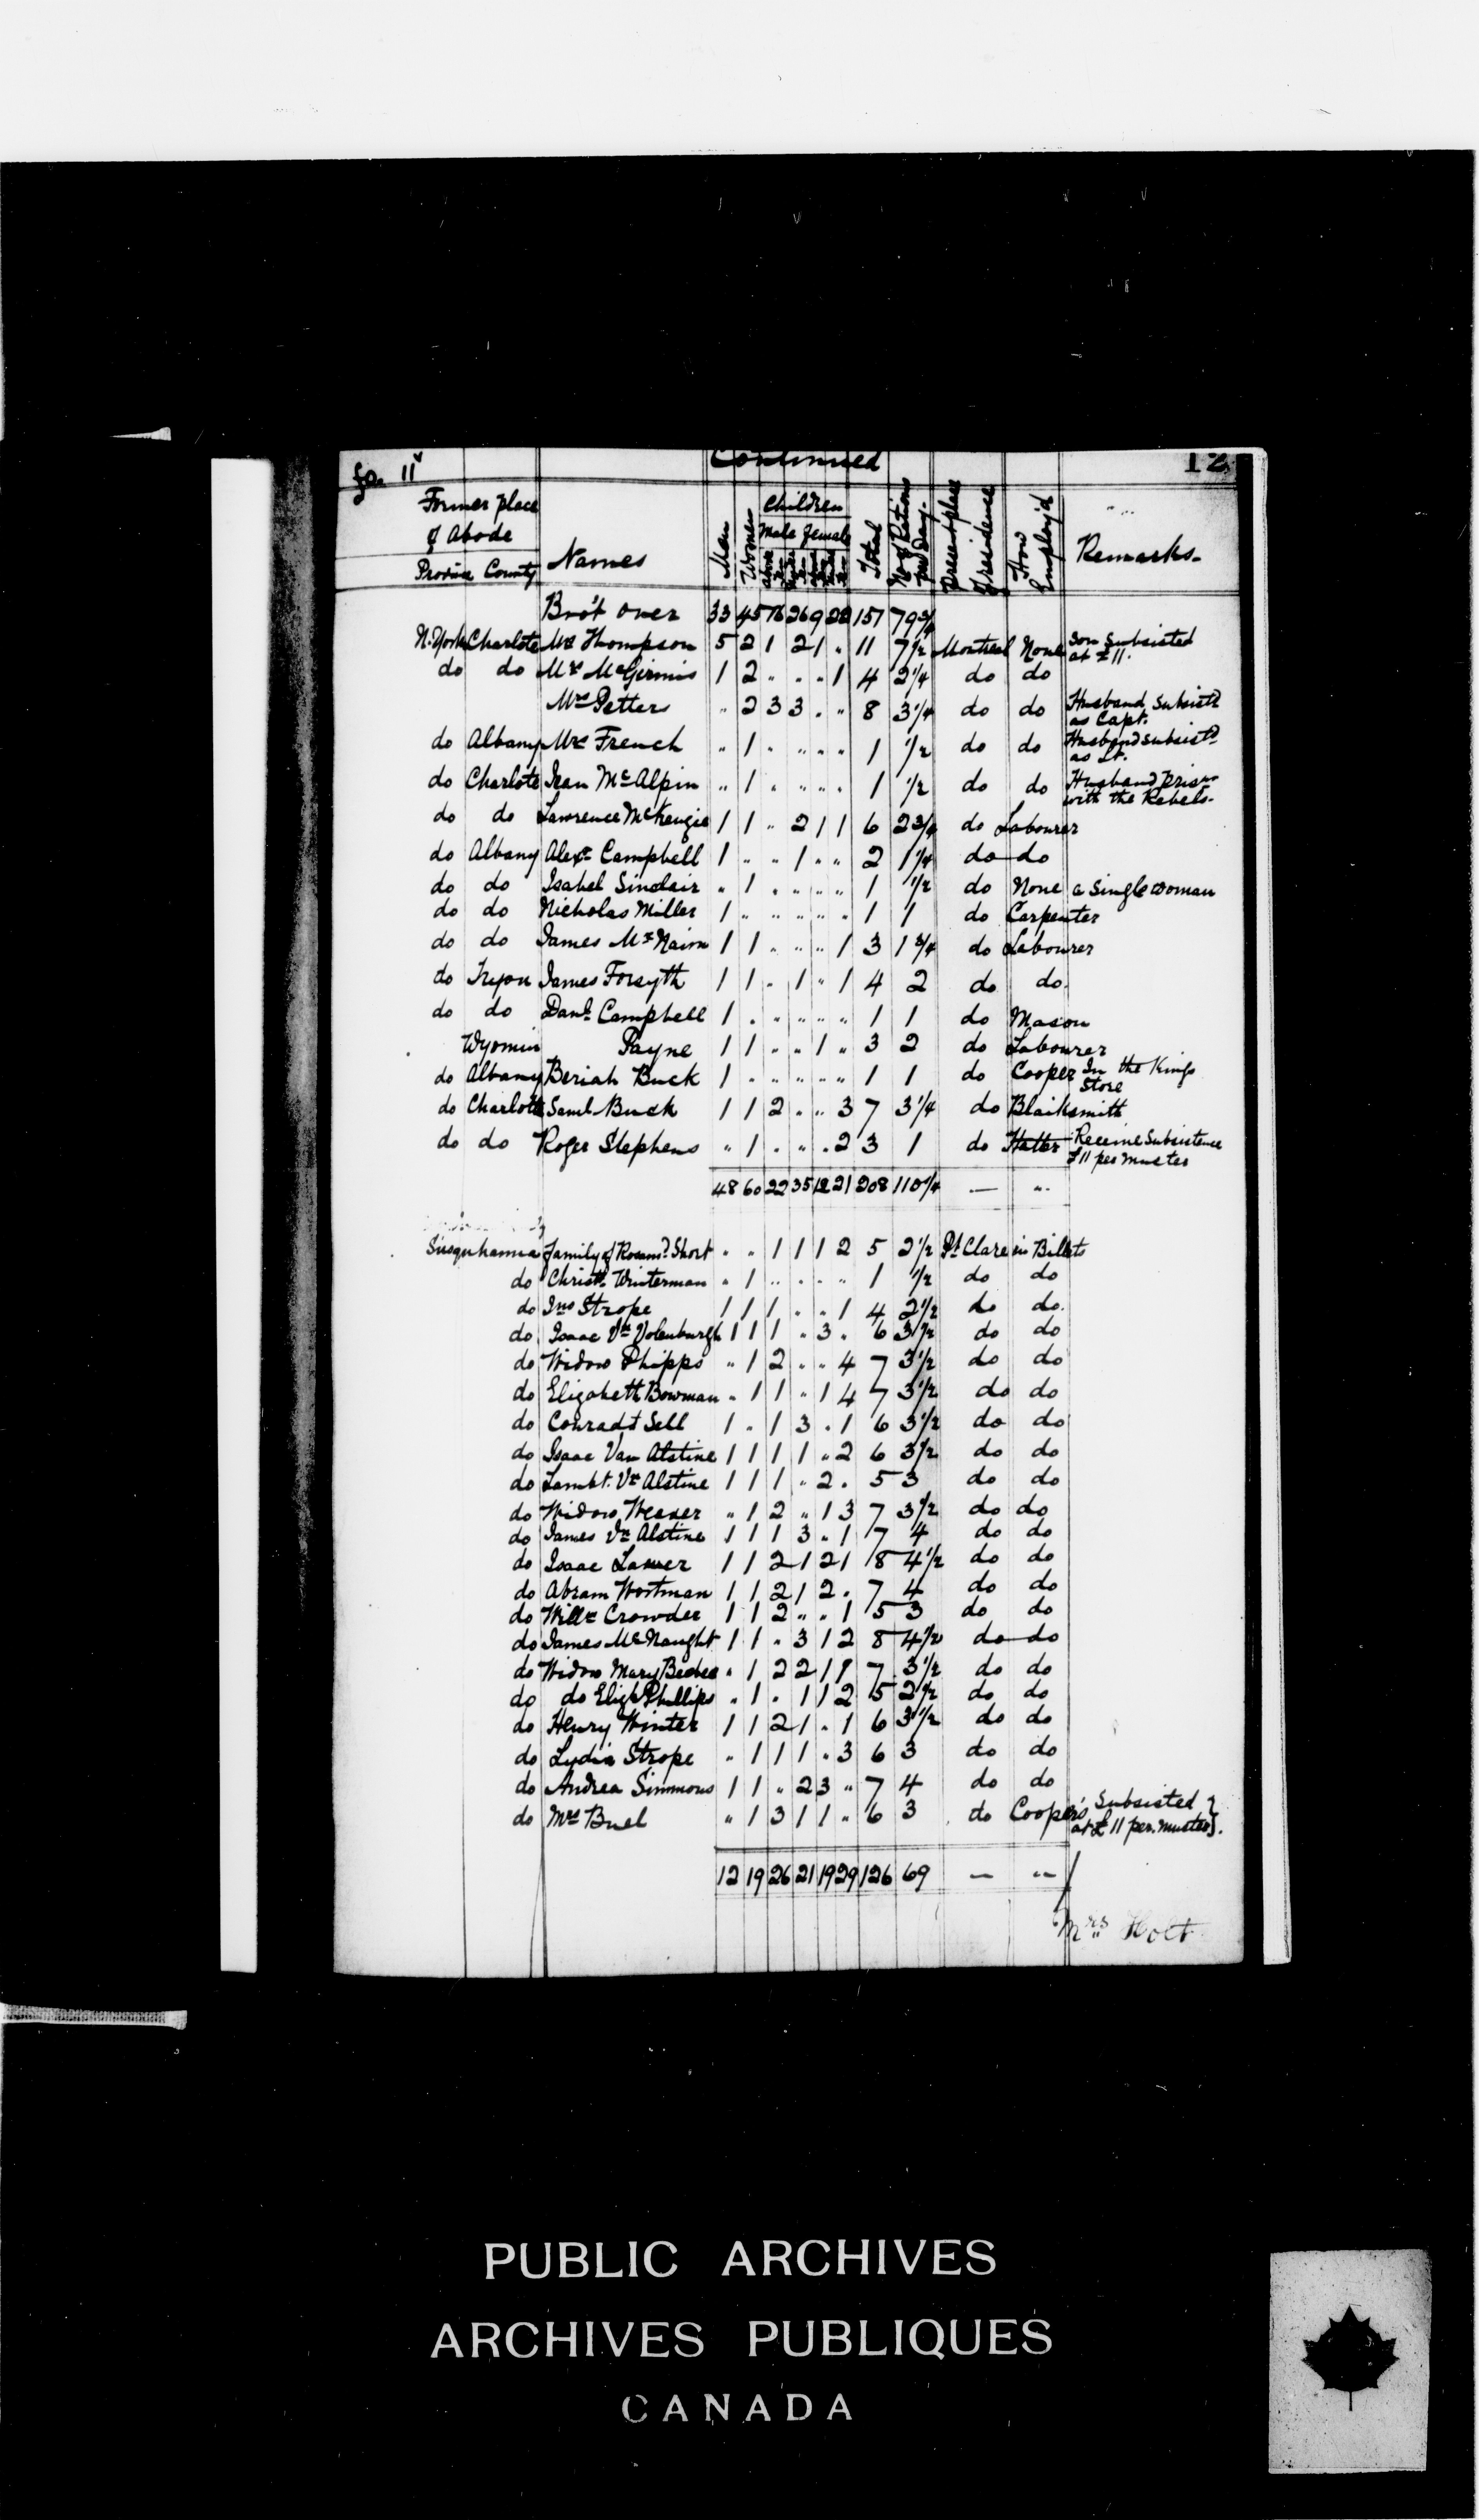 fo. 11v
Continued
12
Former place of Abode
Province County
Names
Men
Women
Children
Male female
Total
No of Rations per day.
Present place of residence
How Employ'd
Remarks-
Bro't over 33 45 16 26 9 28 157 79 3/4
N. York Charlote Mrs Thompson 5 2 1 2 1 " 11 7 1/2 Montreal None Son Subsisted at £11.
do do Mrs McGinnis 1 2 " " " 1 4 2 1/4 do do
Mrs Petters " 2 3 3 " " 8 3 1/4 do do Husband Subsistd as Capt.
do Albany Mrs French " 1 " " " " 1 1/2 do do Husband subsistd as Lt.
do Charlote Jean McAlpin " 1 " " " " 1 1/2 do do Husband prisr with the Rebels-
do do Lawrence McKenzie 1 1 " 2 1 1 6 2 3/4 do Labourer
do Albany Alexr Campbell 1 " " 1 " " 2 1 1/4 do do
do do Isabel Sinclair " 1 " " " " 1 1/2 do None a Single woman
do do Nicholas Miller 1 " " " " " 1 1 do Carpenter
do do James McNairn 1 1 " " " 1 3 1 3/4 do Labourer
do Tryon James Forsyth 1 1 " 1 " 1 4 2 do do
do do Danl Campbell 1 " " " " " 1 1 do Mason
Wyomin Payne 1 1 " " 1 " 3 2 do Labourer
do Albany Beriah Buck 1 " " " " " 1 1 do Cooper In the Kings Store
do Charlotte Saml Buck 1 1 2 " " 3 7 3 1/4 do Blaiksmith
do do Roger Stephens " 1 " " " 2 3 1 do Hatter Receive Subsistence £11 per muster
48 60 22 35 12 21 208 110 1/4 — "
Susquhanna family of Rosamd Short " " 1 1 1 2 5 2 1/2 Pt Clare in Billets
do Christn Winterman " 1 " " " " 1 1/2 do do
do Jno Strope 1 1 1 " " 1 4 2 1/2 do do.
do Isaac Vn Volenburgh 1 1 1 " 3 " 6 3 1/2 do do
do Widow Phipps " 1 2 " " 4 7 3 1/2 do do
do Elizabeth Bowman " 1 1 " 1 4 7 3 1/2 do do
do Conradt Sell 1 " 1 3 " 1 6 3 1/2 do do
do Isaac Van Alstine 1 1 1 1 " 2 6 3 1/2 do do
do Lambt. Vn Alstine 1 1 1 " 2 " 5 3 do do
do Widow Weaver " 1 2 " 1 3 7 3 1/2 do do
do James Vn Alstine 1 1 1 3 " 1 7 4 do do
do Isaac Lawer 1 1 2 1 2 1 8 4 1/2 do do
do Abram Wortman 1 1 2 1 2 " 7 4 do do
do Willm Crowder 1 1 2 " " 1 5 3 do do
do James McNaught 1 1 " 3 1 2 8 4 1/2 do do
do Widow Mary Beebee " 1 2 2 1 1 7 3 1/2 do do
do do Elizh Phillips " 1 " 1 1 2 5 2 1/2 do do
do Henry Winter 1 1 2 1 " 1 6 3 1/2 do do
do Lydia Strope " 1 1 1 " 3 6 3 do do
do Andrea Simmons 1 1 " 2 3 " 7 4 do do
do Mrs Buel " 1 3 1 1 " 6 3 do Cooper's Subsisted at £11 per. muster.
12 19 26 21 19 29 126 69 — "
Mrs Holt
PUBLIC ARCHIVES
ARCHIVES PUBLIQUES
CANADA